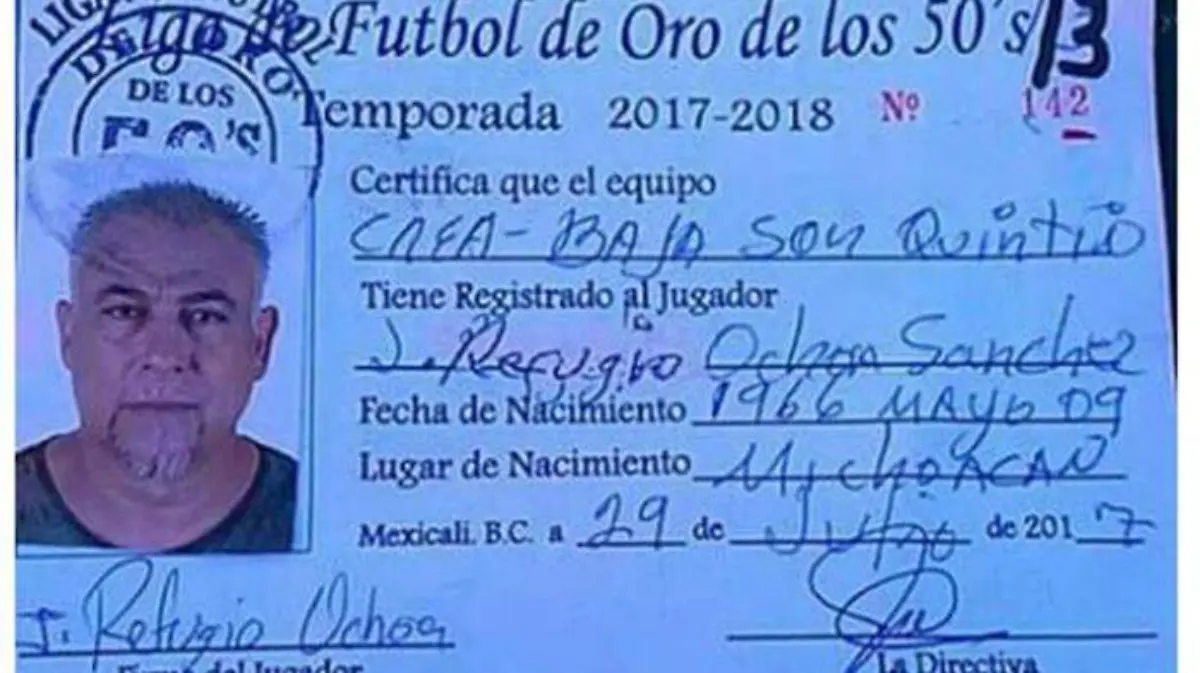 Liga de Futbol de Oro de los 50's
13
DE ORO
DE LOS
50'S
Temporada 2017-2018 Nº 142
Certifica que el equipo
CAFA-BAJA SON QUINTIN
Tiene Registrado al Jugador
J. Refugio Ochoa Sanchez
Fecha de Nacimiento 1966 MAYO 09
Lugar de Nacimiento MICHOACAN
Mexicali, B.C. a 29 de Julio de 2017
J. Refugio Ochoa
Firma del Jugador
La Directiva